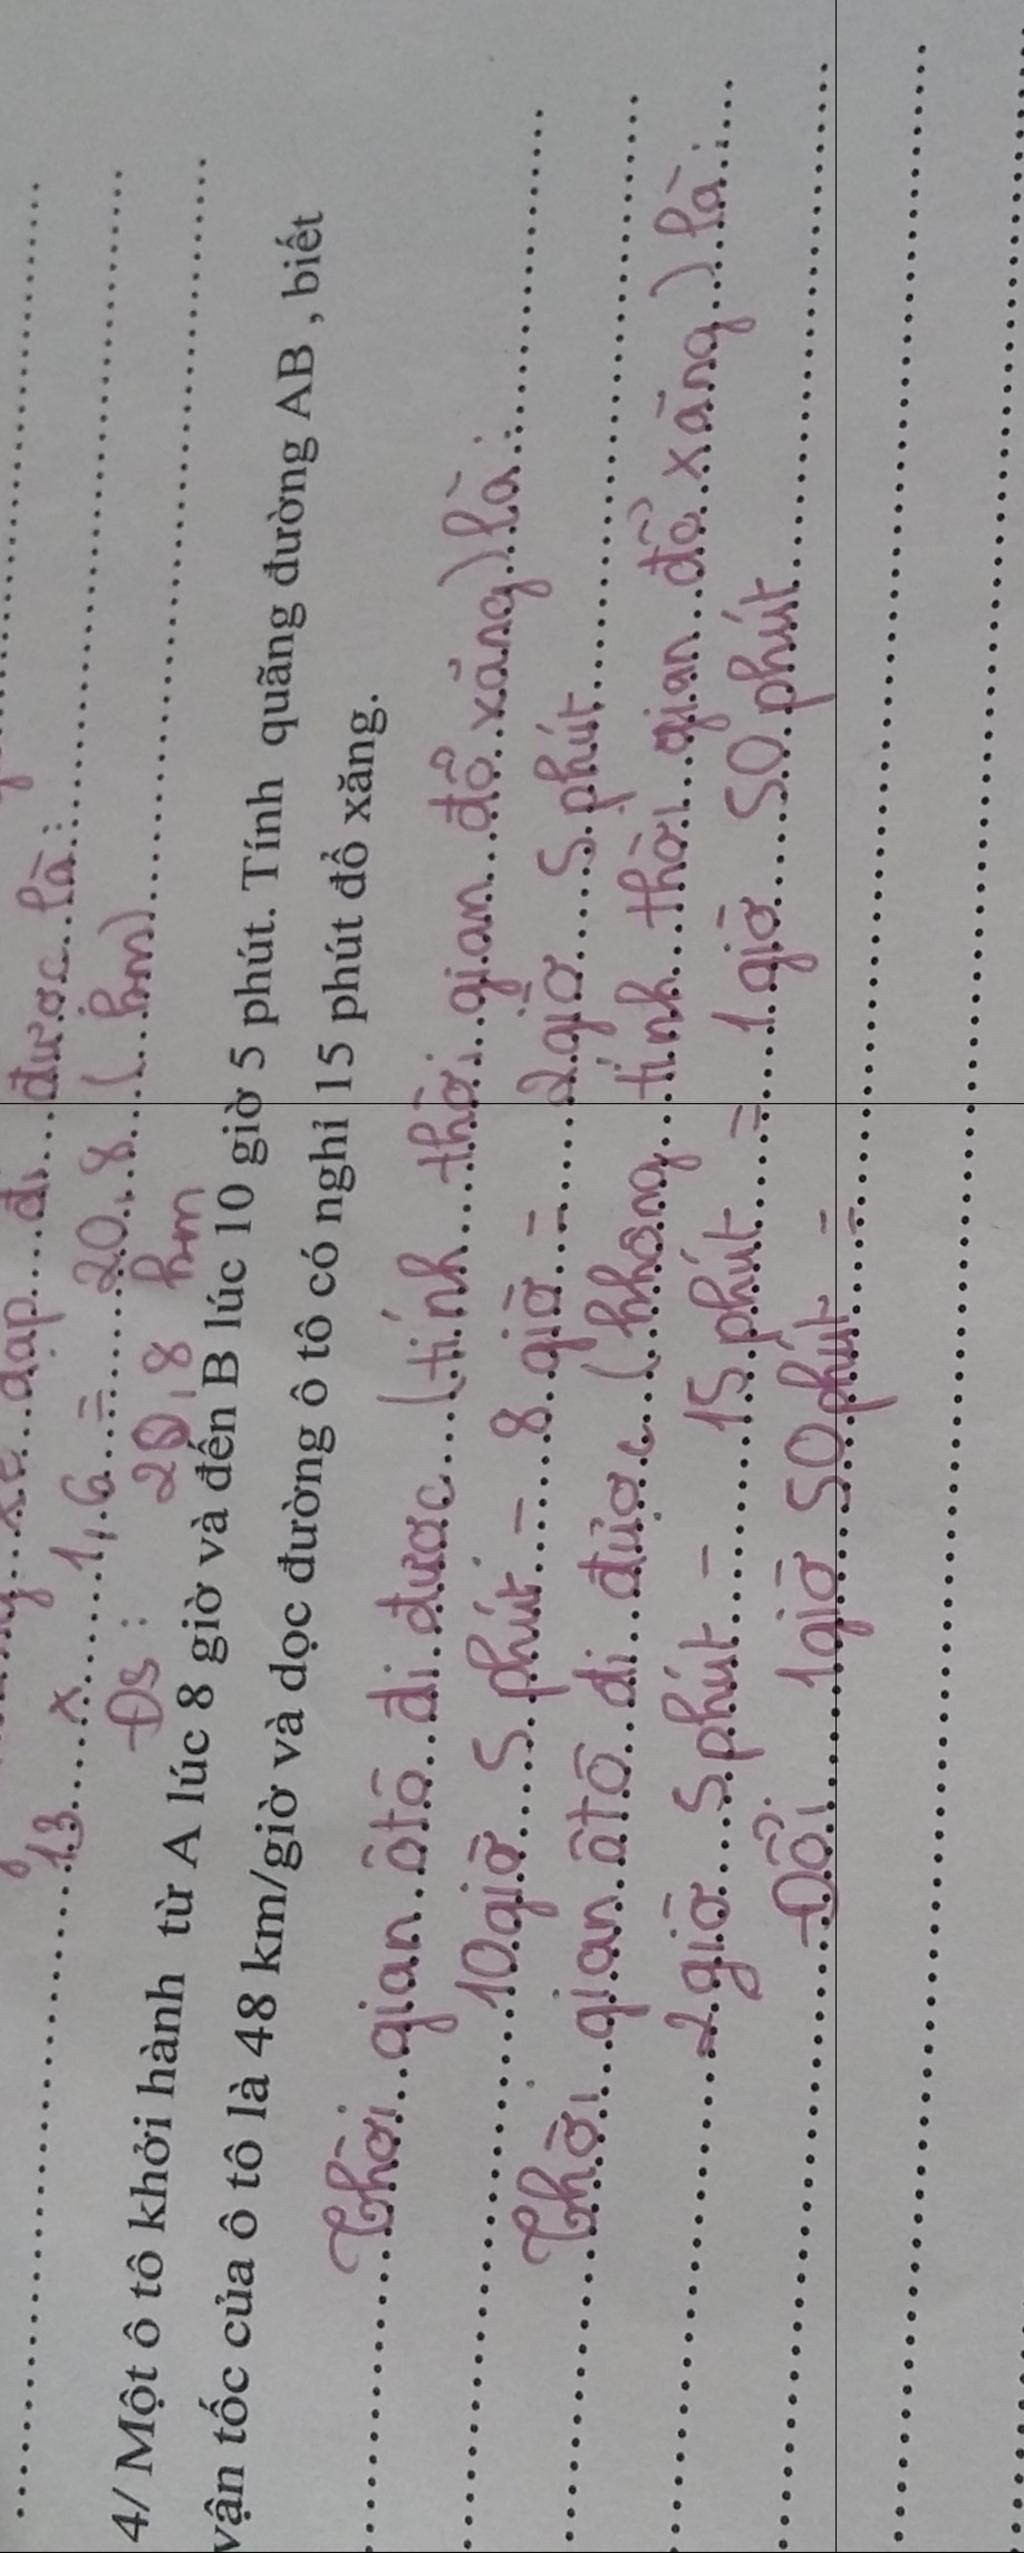 đạp đi được là:
13 x 1,6 = 20,8 (km)
Đs: 20,8 km
4/ Một ô tô khởi hành từ A lúc 8 giờ và đến B lúc 10 giờ 5 phút. Tính quãng đường AB , biết
vận tốc của ô tô là 48 km/giờ và dọc đường ô tô có nghỉ 15 phút đổ xăng.
Thời gian ôtô đi được (tính thời gian đổ xăng) là:
10 giờ 5 phút - 8 giờ = 2 giờ 5 phút
Thời gian ôtô đi được (không tính thời gian đổ xăng) là:
2 giờ 5 phút - 15 phút = 1 giờ 50 phút
Đổi 1 giờ 50 phút =